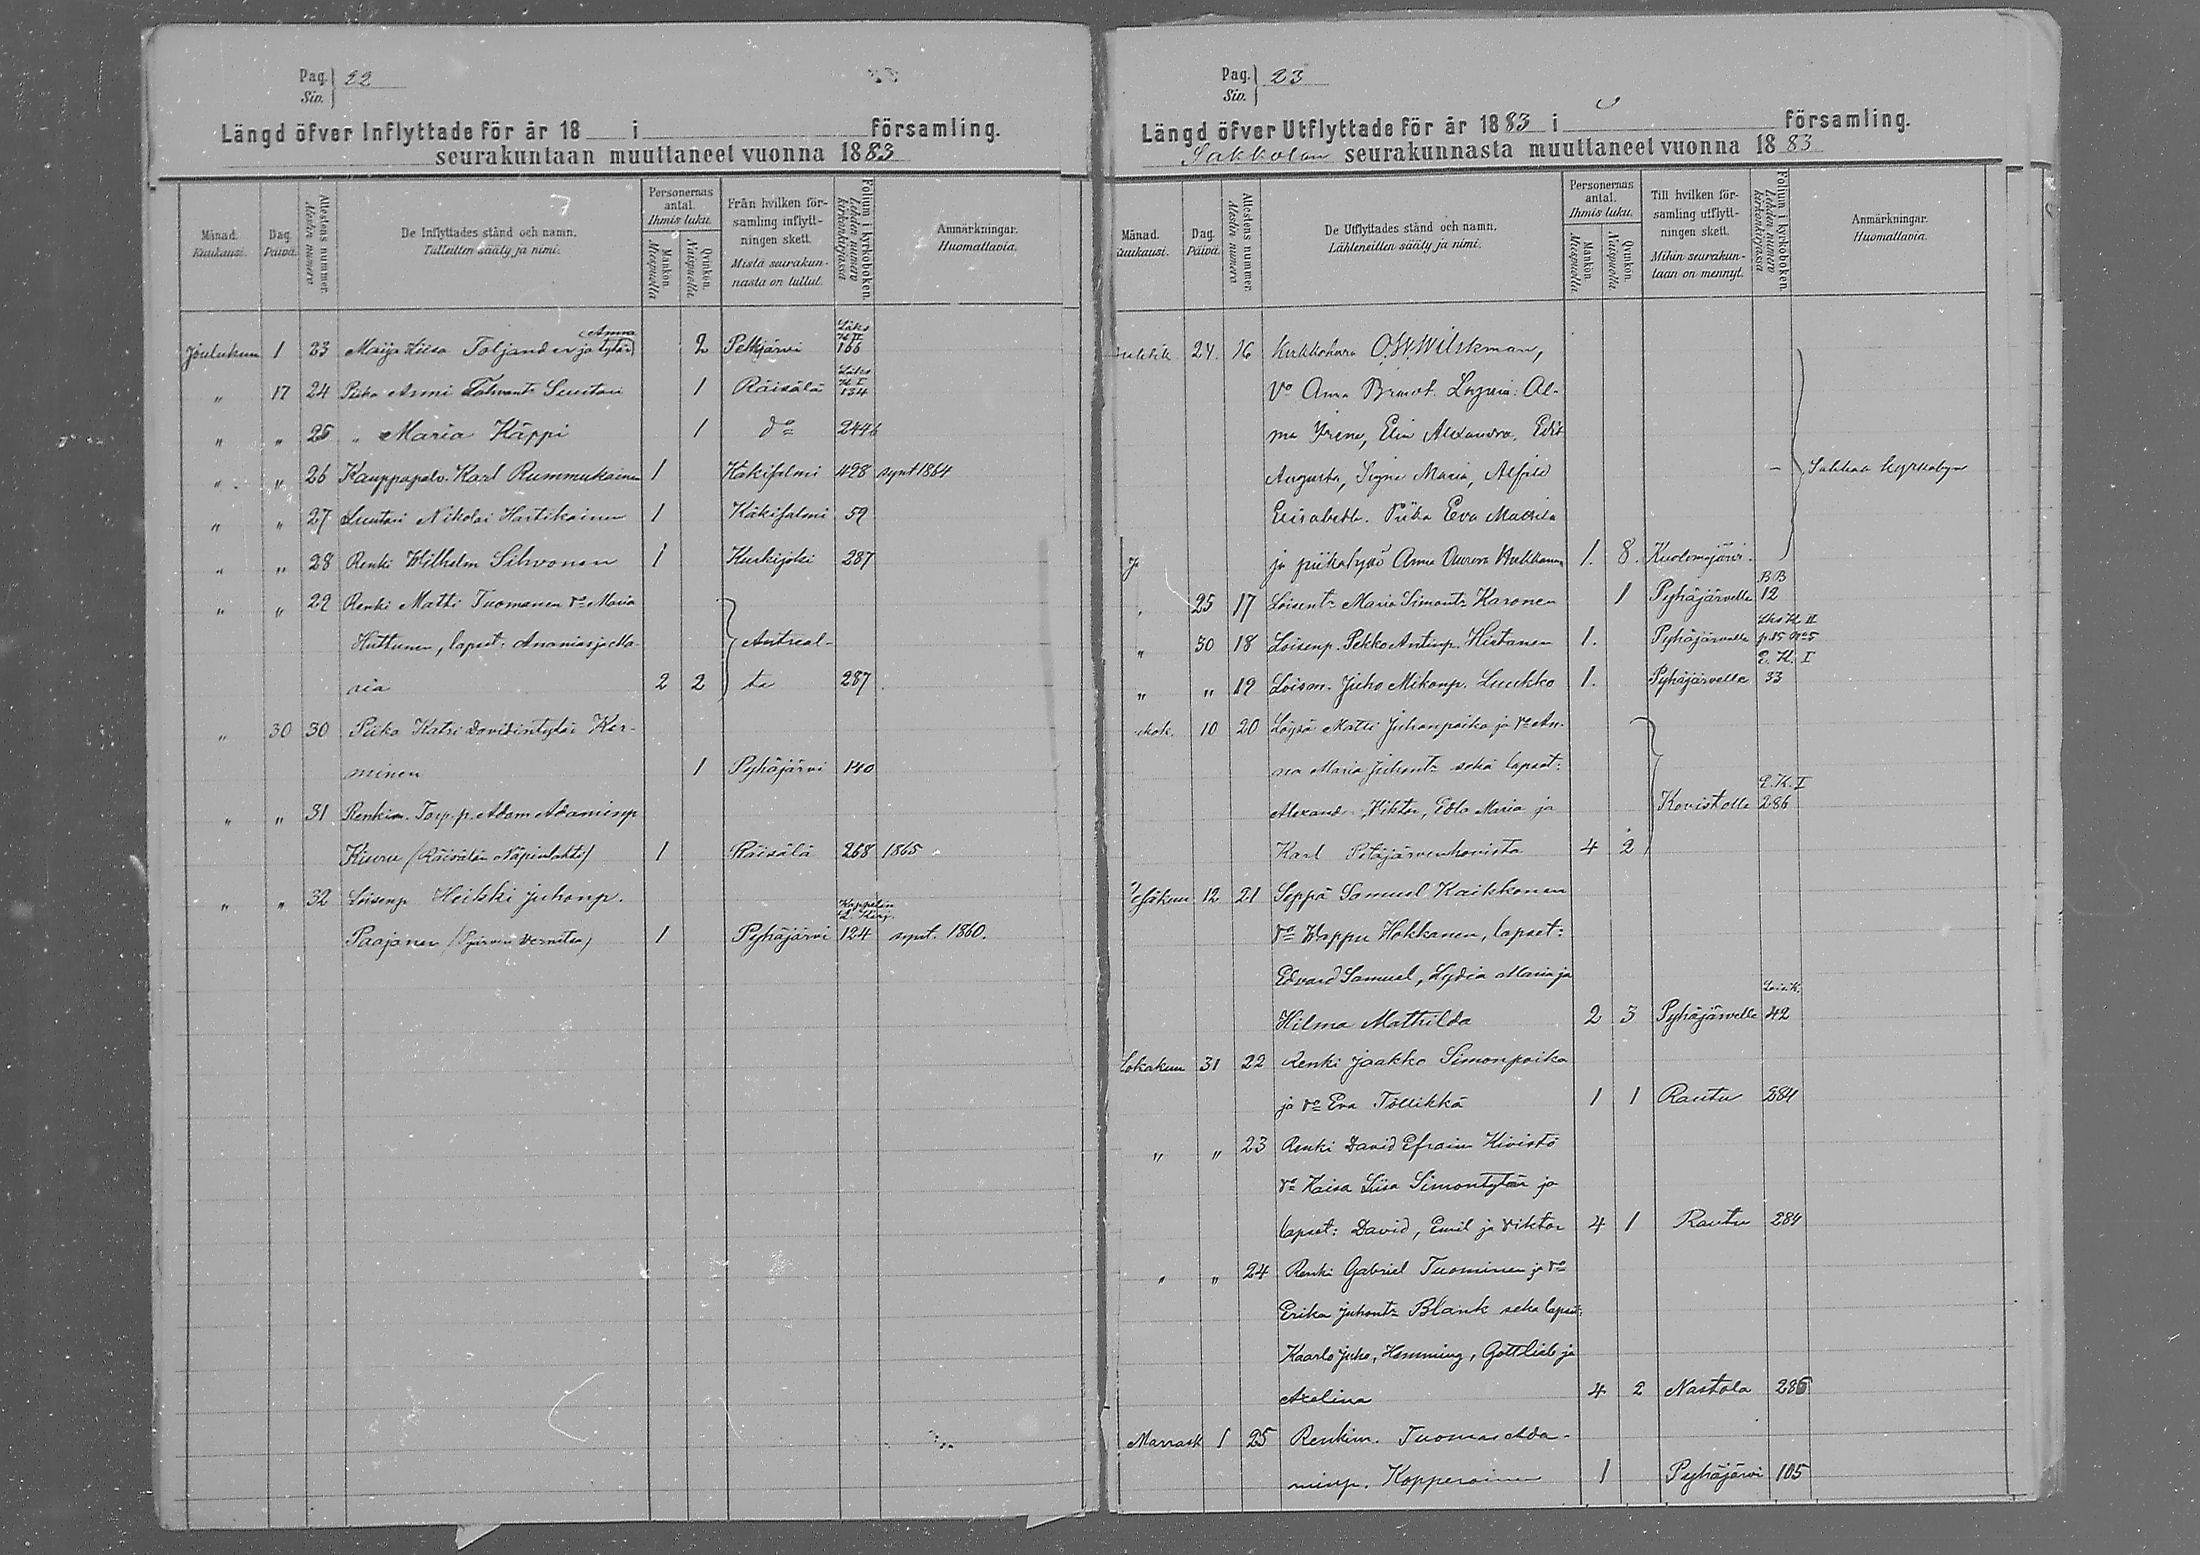 Pag. 22
Siv.
Längd öfver Inflyttade för år 18 i församling.
seurakuntaan muuttaneet vuonna 1883
Månad. Kuukausi. Dag. Päivä. Attestens nummer. Atestin numero De Inflyttades stånd och namn. Tulleitten sääty ja nimi. Personernas antal. Ihmis luku. Mankön. Miespuolia Qvinkön. Naispuolia. Från hvilken församling inflyttningen skett. Mistä seurakunnasta on tullut. Folium i kyrkoboken. Lehden numero kirkonkirjassa Anmärkningar. Huomattavia.
Anna Läks
K II
Joulukuu 1 23 Maija Liisa Toljander ja tytär 2 Pelkjärvi 166
Läks
K I
" 17 24 Piika Anni Tahvont: Suutari 1 Räisälä 134
" " 25 " Maria Käppi 1 do 244b
" " 26 Kauppapalv. Karl Rummukainen 1 Käkisalmi 428 synt 1864
" " 27 Suutari Nikolai Hartikainen 1 Käkisalmi 59
" " 28 Renki Wilhelm Sihvonen 1 Kurkijoki 287
" " 29 Renki Matti Tuomanen vo Maria
Huttunen, lapset: Ananias ja Ma- Antreal-
ria 2 2 ta 287
" 30 30 Piika Katri Davidintytär Ker-
minen 1 Pyhäjärvi 140
" " 31 Renkim. Torp. p. Adam Adaminp
Kiuru (Räisälän Näpinlahti) 1 Räisälä 268 1865
" " 32 Loisenp Heikki Juhonp.
Paajanen (Pjärven Vernitsa) 1 Pyhäjärvi 124 synt. 1860.
Pag. 23
Siv.
Längd öfver Utflyttade för år 1883 i församling.
Sakkolan seurakunnasta muuttaneet vuonna 1883
Månad. Kuukausi. Dag. Päivä. Attestens nummer. Atestin numero De Utflyttades stånd och namn. Lähteneitten sääty ja nimi. Personernas antal. Ihmis luku. Mankön. Miespuolia Qvinkön. Naispuolia Till hvilken församling utflyttningen skett. Mihin seurakuntaan on mennyt. Folium i kyrkoboken. Lehden numero kirkonkirjassa Anmärkningar. Huomattavia.
24 16 Kirkkoherra O. W. Wilskman,
vo Anna Lapsia: Al-
ma Irene, Elin Alexandra, Edit
Augusta, Signe Maria, Alfild - Sakkola kyrkoby
Elisabeth. Piika Eva
ja piikatyttö Anna Aurora 1. 8. Kuolemajärvi.
BB
" 25 17 Loisent: Maria Simont: Karonen 1 Pyhäjärvelle 12
K II
" 30 18 Loisenp. Pekko Antinp. Hietanen 1. Pyhäjärvelle p.15 No 5
E. K. I
" " 19 Loism. Juho Mikonp. Luukko 1. Pyhäjärvelle 33
10 20 Löysä Matti Juhonpoika ja vo An-
na Maria Juhont: sekä lapset:
E. K. I
Alexand., Viktor, Edla Maria ja Koivistolle 286
Karl Petäjärvenkovista 4 2
12 21 Seppä Samuel Kaikkonen
vo Wappu Hokkanen, lapset:
Edvard Samuel, Lydia Maria ja
Loisik.
Hilma Mathilda 2 3 Pyhäjärvelle 42
Lokakuu 31 22 Renki Jaakko Simonpoika
ja vo Eva Töllikkä 1 1 Rautu 284
" " 23 Renki David Efraim Kivistö
vo Kaisa Liisa Simontytär ja
lapset: David, Emil ja Viktor 4 1 Rautu 284
" " 24 Renki Gabriel Tuominen ja vo
Erika Juhont: Blank seka lapset:
Kaarlo Juho, Hemming, Gottlieb ja
Axelina 4 2 Nastola 285
Marrask 1 25 Renkim. Tuomas Ada-
minp. Kopperoinen 1 Pyhäjärvi 105